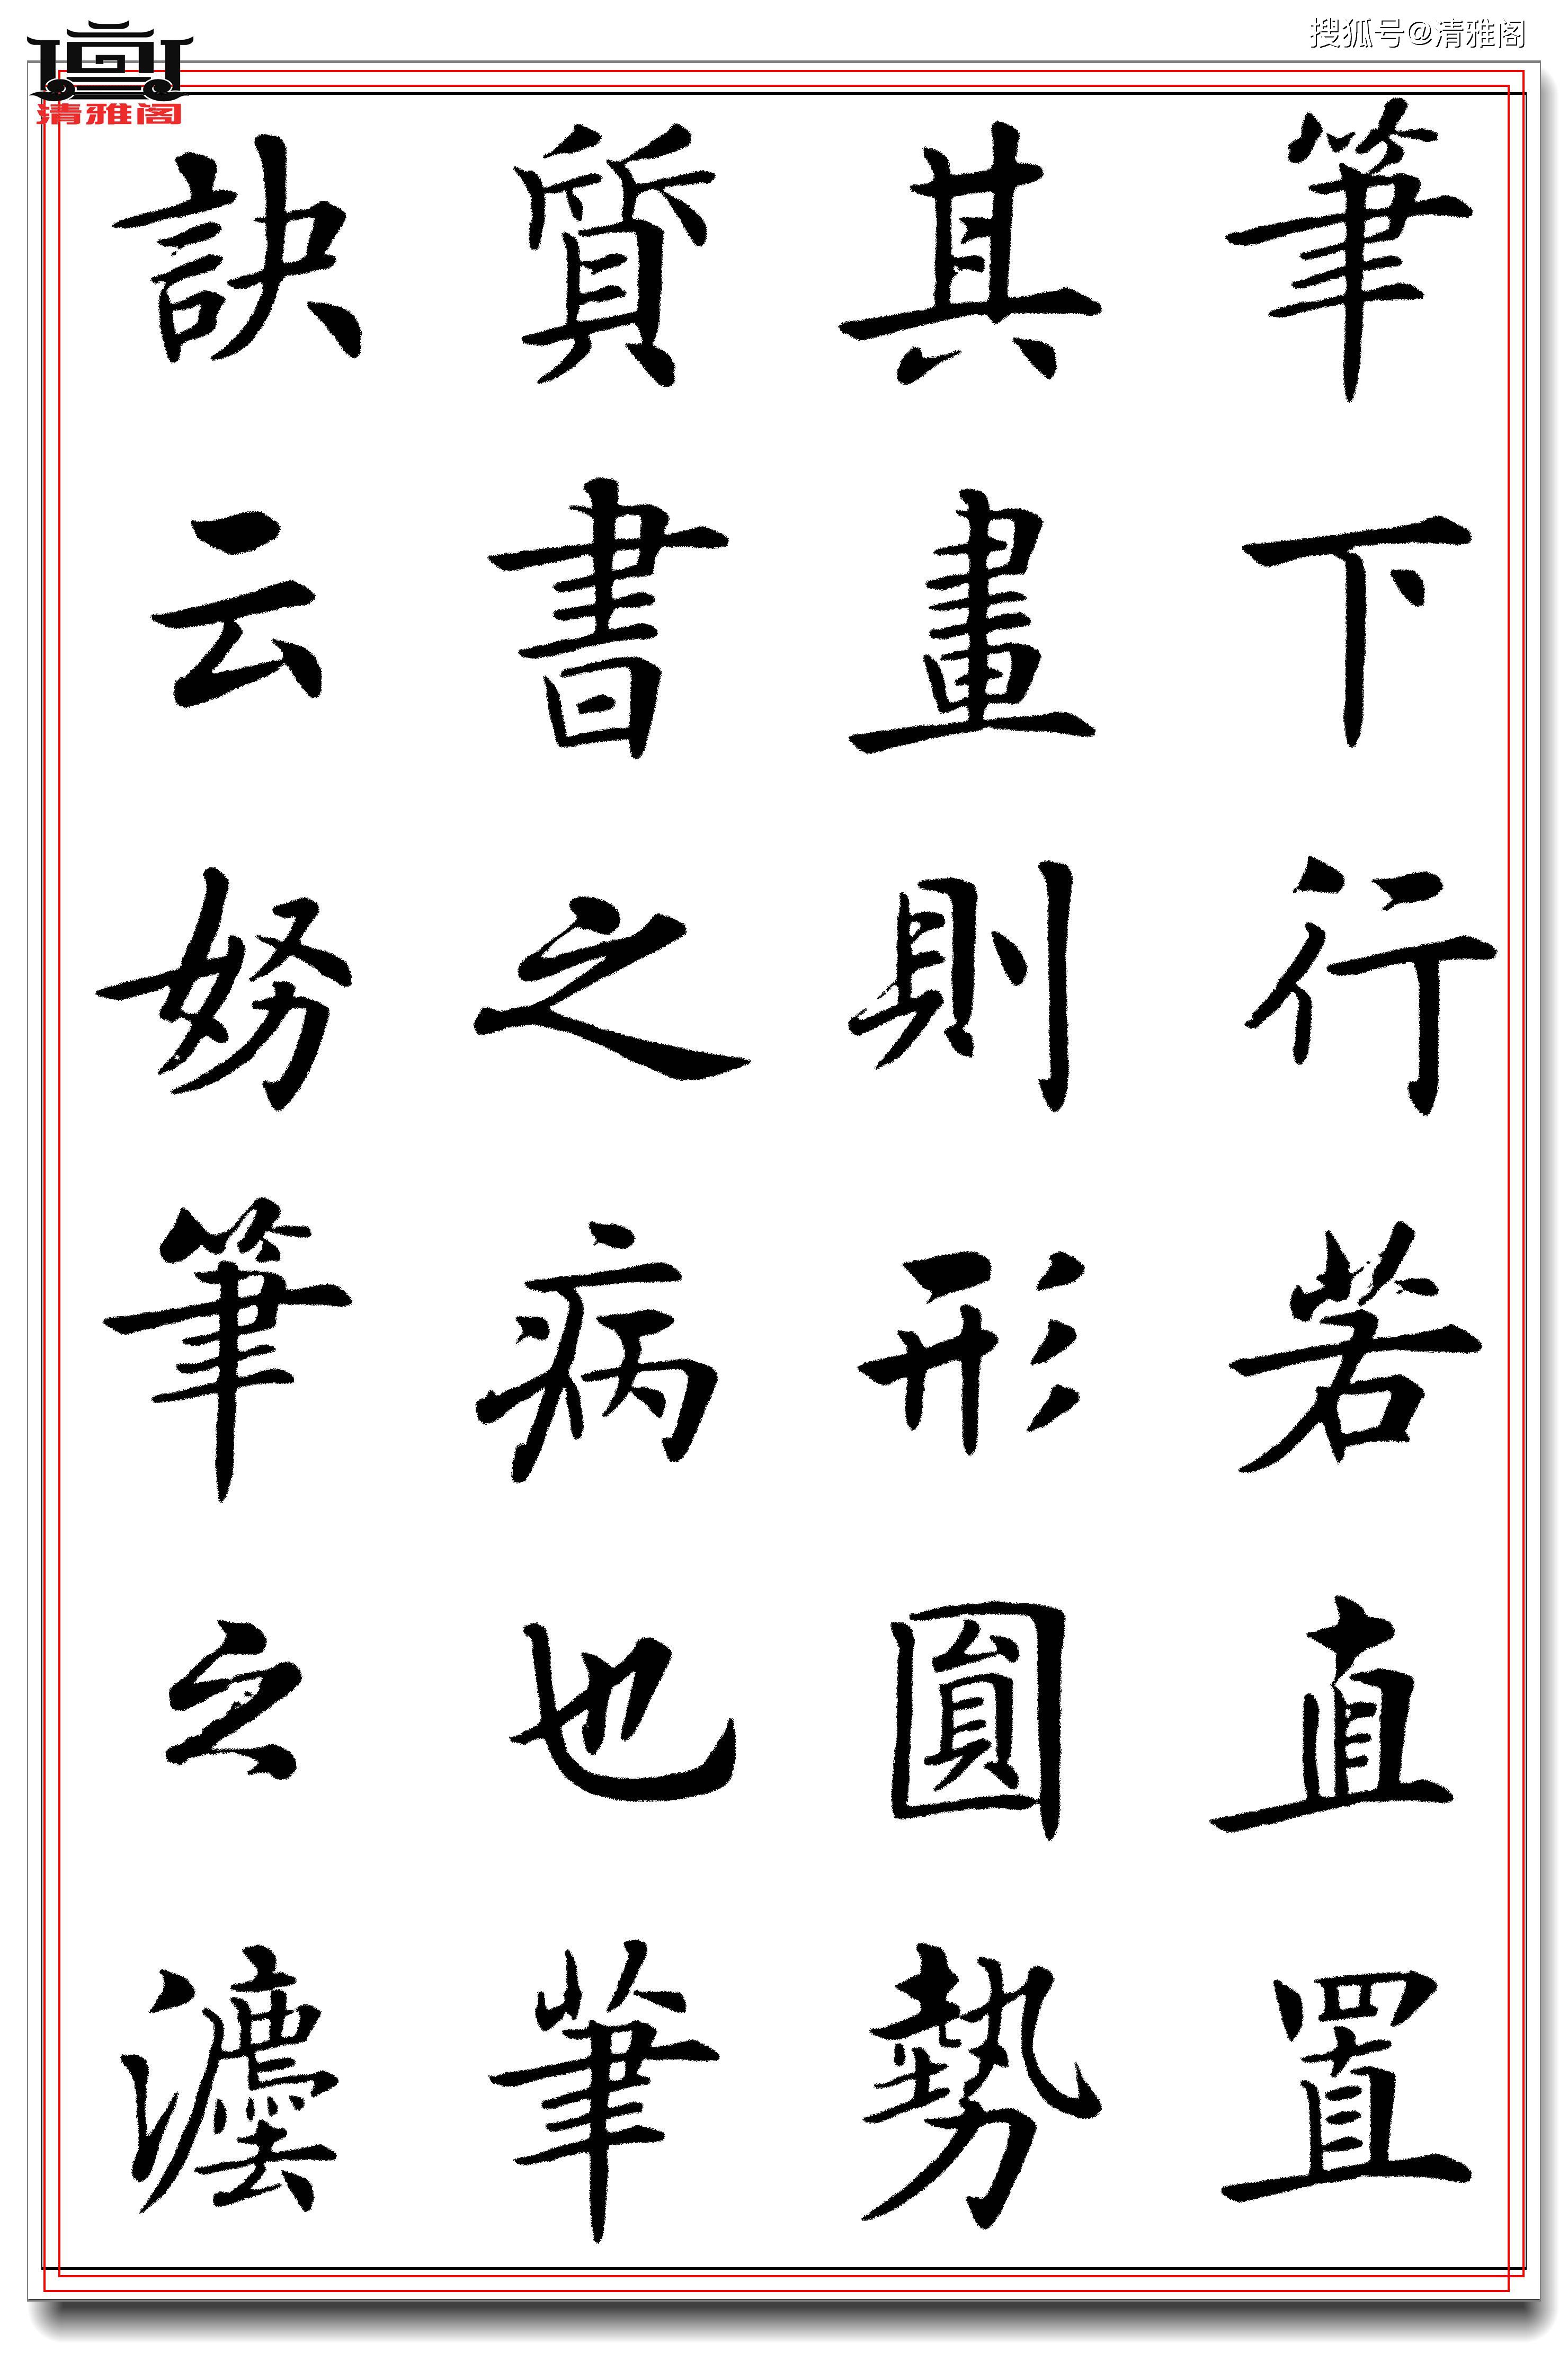 搜狐号@清雅阁
清雅阁
筆下行若直置
其畫則形圓勢
質書之病也筆
訣云努筆之灋